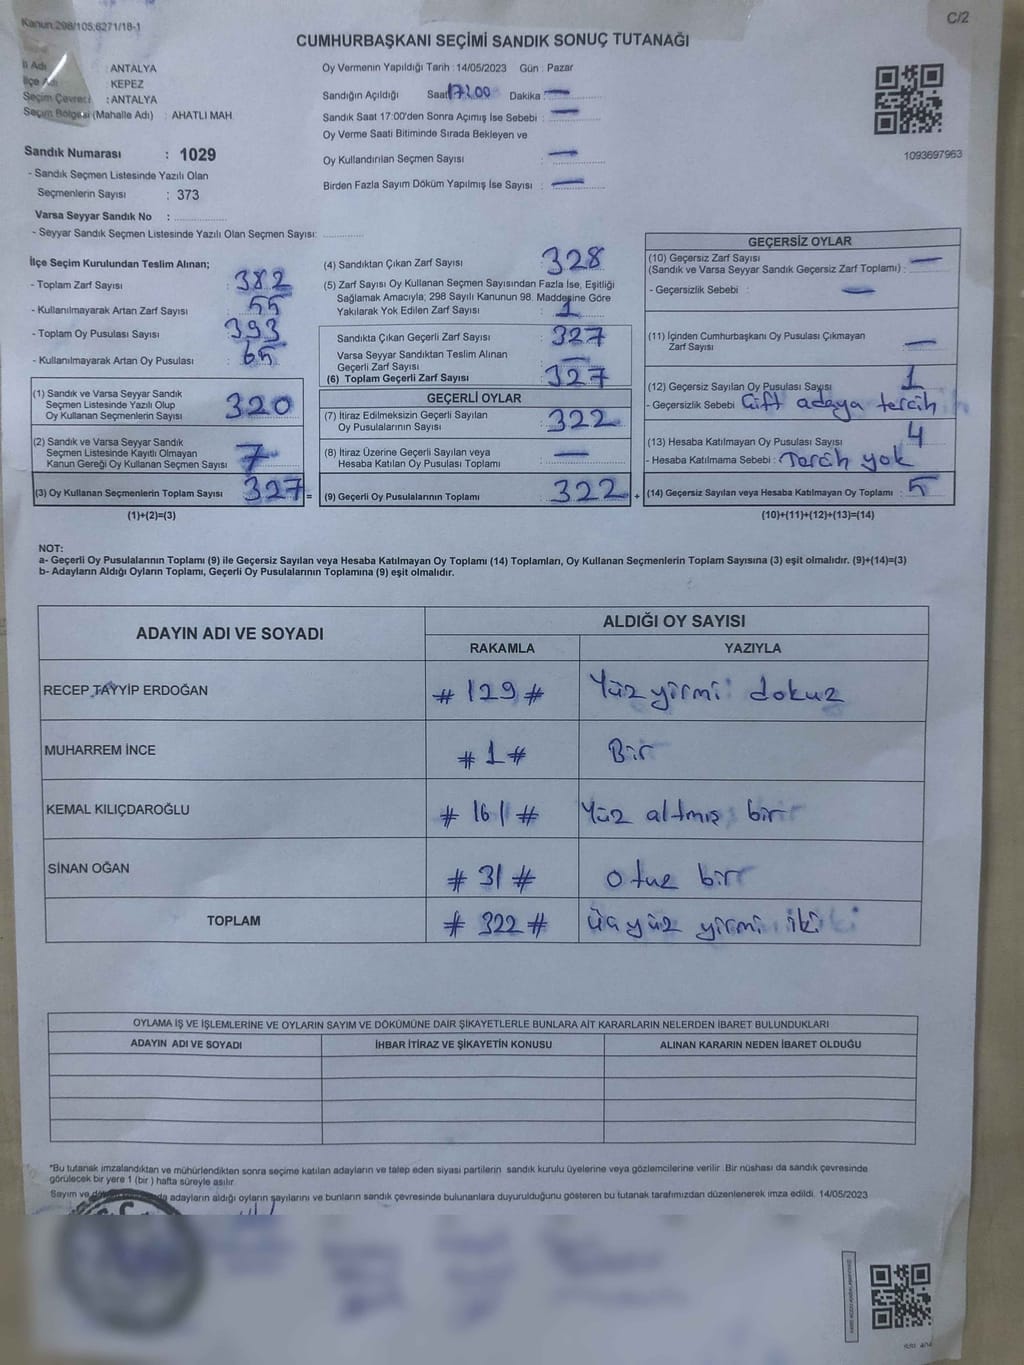 Kanun:298/105,6271/18-1
C/2
CUMHURBAŞKANI SEÇİMİ SANDIK SONUÇ TUTANAĞI
İl Adı : ANTALYA
İlçe Adı : KEPEZ
Seçim Çevresi : ANTALYA
Seçim Bölgesi (Mahalle Adı) : AHATLI MAH.
Sandık Numarası : 1029
- Sandık Seçmen Listesinde Yazılı Olan
Seçmenlerin Sayısı : 373
Varsa Seyyar Sandık No :
- Seyyar Sandık Seçmen Listesinde Yazılı Olan Seçmen Sayısı:
Oy Vermenin Yapıldığı Tarih : 14/05/2023 Gün : Pazar
Sandığın Açıldığı Saat 17:00 Dakika : —
Sandık Saat 17:00'den Sonra Açımış İse Sebebi : —
Oy Verme Saati Bitiminde Sırada Bekleyen ve
Oy Kullandırılan Seçmen Sayısı : —
Birden Fazla Sayım Döküm Yapılmış İse Sayısı : —
1093697963
İlçe Seçim Kurulundan Teslim Alınan;
- Toplam Zarf Sayısı : 382
- Kullanılmayarak Artan Zarf Sayısı : 55
- Toplam Oy Pusulası Sayısı : 393
- Kullanılmayarak Artan Oy Pusulası : 65
(1) Sandık ve Varsa Seyyar Sandık
Seçmen Listesinde Yazılı Olup
Oy Kullanan Seçmenlerin Sayısı : 320
(2) Sandık ve Varsa Seyyar Sandık
Seçmen Listesinde Kayıtlı Olmayan
Kanun Gereği Oy Kullanan Seçmen Sayısı : 7
(3) Oy Kullanan Seçmenlerin Toplam Sayısı : 327 =
(1)+(2)=(3)
(4) Sandıktan Çıkan Zarf Sayısı : 328
(5) Zarf Sayısı Oy Kullanan Seçmen Sayısından Fazla İse, Eşitliği
Sağlamak Amacıyla; 298 Sayılı Kanunun 98. Maddesine Göre
Yakılarak Yok Edilen Zarf Sayısı : 1
Sandıkta Çıkan Geçerli Zarf Sayısı : 327
Varsa Seyyar Sandıktan Teslim Alınan
Geçerli Zarf Sayısı : —
(6) Toplam Geçerli Zarf Sayısı : 327
GEÇERLİ OYLAR
(7) İtiraz Edilmeksizin Geçerli Sayılan
Oy Pusulalarının Sayısı : 322
(8) İtiraz Üzerine Geçerli Sayılan veya
Hesaba Katılan Oy Pusulası Toplamı : —
(9) Geçerli Oy Pusulalarının Toplamı : 322 +
GEÇERSİZ OYLAR
(10) Geçersiz Zarf Sayısı
(Sandık ve Varsa Seyyar Sandık Geçersiz Zarf Toplamı) : —
- Geçersizlik Sebebi : —
(11) İçinden Cumhurbaşkanı Oy Pusulası Çıkmayan
Zarf Sayısı : —
(12) Geçersiz Sayılan Oy Pusulası Sayısı : 1
- Geçersizlik Sebebi : Çift adaya tercih
(13) Hesaba Katılmayan Oy Pusulası Sayısı : 4
- Hesaba Katılmama Sebebi : Tercih yok
(14) Geçersiz Sayılan veya Hesaba Katılmayan Oy Toplamı : 5
(10)+(11)+(12)+(13)=(14)
NOT:
a- Geçerli Oy Pusulalarının Toplamı (9) ile Geçersiz Sayılan veya Hesaba Katılmayan Oy Toplamı (14) Toplamları, Oy Kullanan Seçmenlerin Toplam Sayısına (3) eşit olmalıdır. (9)+(14)=(3)
b- Adayların Aldığı Oyların Toplamı, Geçerli Oy Pusulalarının Toplamına (9) eşit olmalıdır.
ADAYIN ADI VE SOYADI ALDIĞI OY SAYISI
RAKAMLA YAZIYLA
RECEP TAYYİP ERDOĞAN # 129 # Yüz yirmi dokuz
MUHARREM İNCE # 1 # Bir
KEMAL KILIÇDAROĞLU # 161 # Yüz altmış bir
SİNAN OĞAN # 31 # otuz bir
TOPLAM # 322 # üçyüz yirmi iki
OYLAMA İŞ VE İŞLEMLERİNE VE OYLARIN SAYIM VE DÖKÜMÜNE DAİR ŞİKAYETLERLE BUNLARA AİT KARARLARIN NELERDEN İBARET BULUNDUKLARI
ADAYIN ADI VE SOYADI İHBAR İTİRAZ VE ŞİKAYETİN KONUSU ALINAN KARARIN NEDEN İBARET OLDUĞU
*Bu tutanak imzalandıktan ve mühürlendikten sonra seçime katılan adayların ve talep eden siyasi partilerin sandık kurulu üyelerine veya gözlemcilerine verilir. Bir nüshası da sandık çevresinde
görülecek bir yere 1 (bir) hafta süreyle asılır.
Sayım ve adayların aldığı oyların sayılarını ve bunların sandık çevresinde bulunanlara duyurulduğunu gösteren bu tutanak tarafımızdan düzenlenerek imza edildi. 14/05/2023